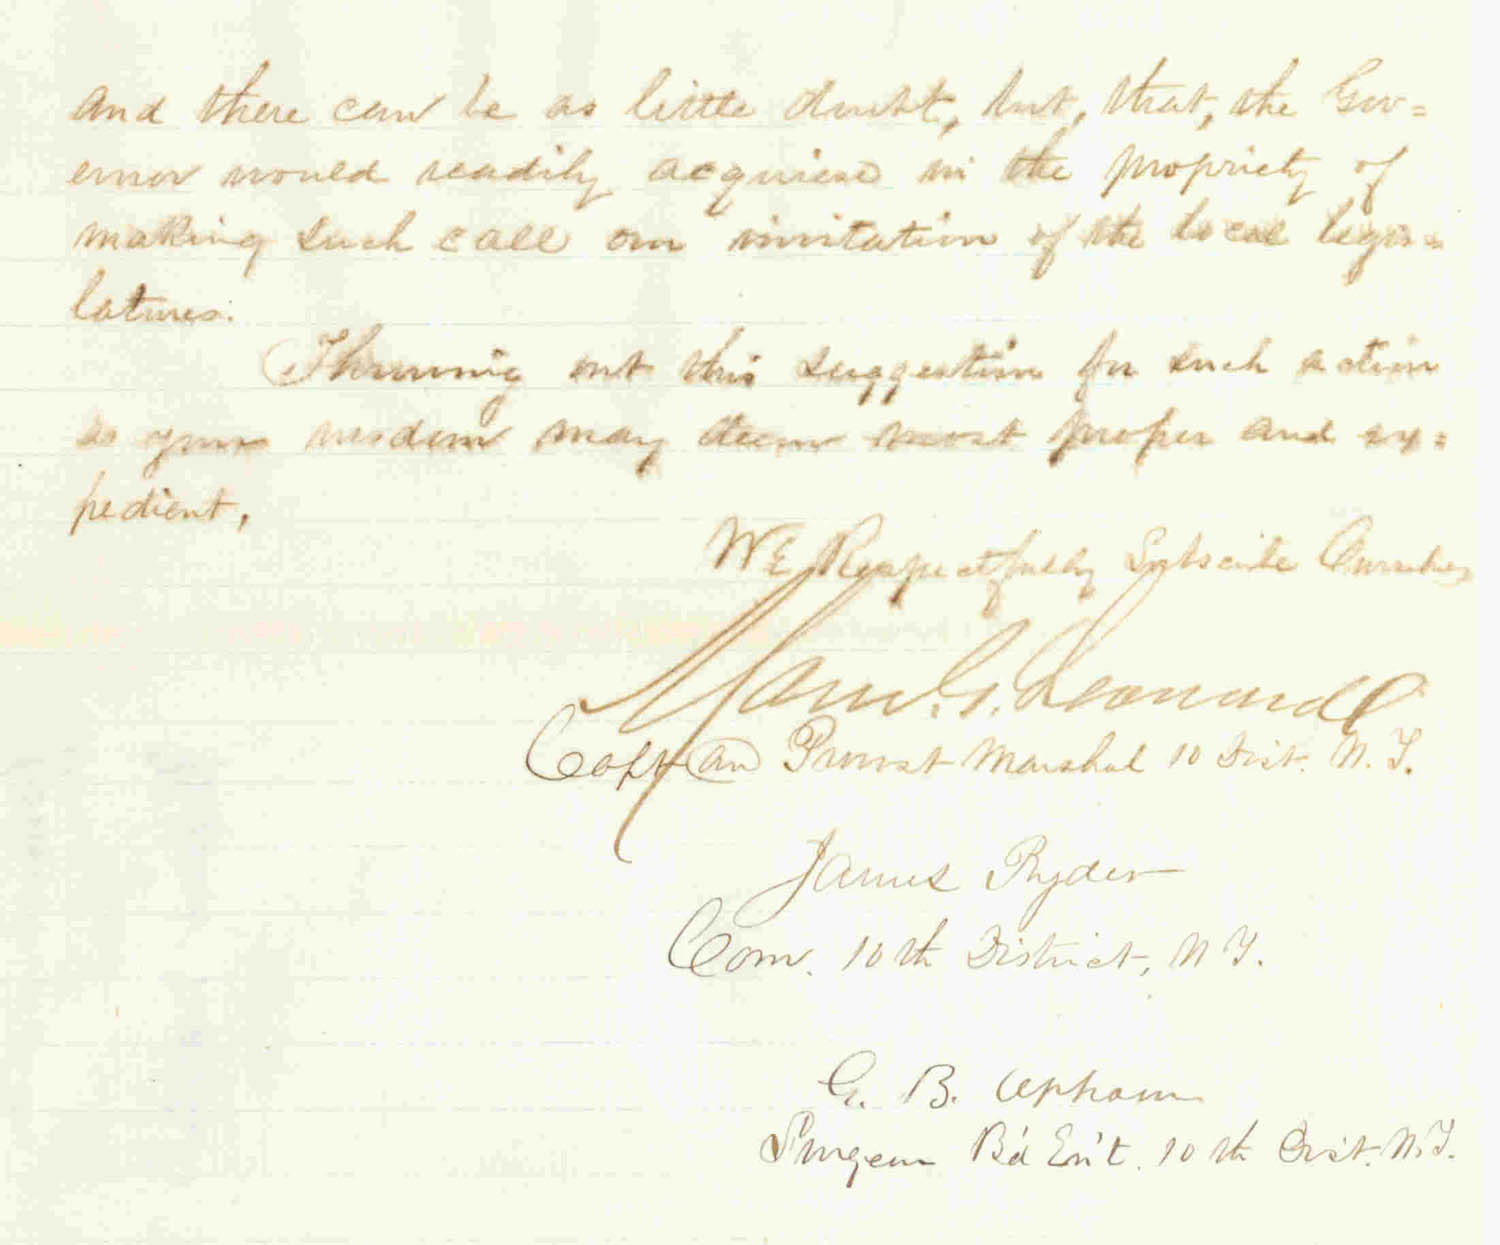 and there can be as little doubt, but, that, the Gov=
ernor would readily acquiese in the propriety of
making such call on invitation of the local legis=
latures.
Throwing out this suggestion for such action
as your wisdom may deem most proper and ex=
pedient,
We Respectfully Subscribe Ourselves
Leonard
Capt an Provost Marshal 10 Dist. N. Y.
James Ryder
Com. 10th District, N Y.
G. B. Upham
Surgeon B'd En't. 10th Dist. N.Y.